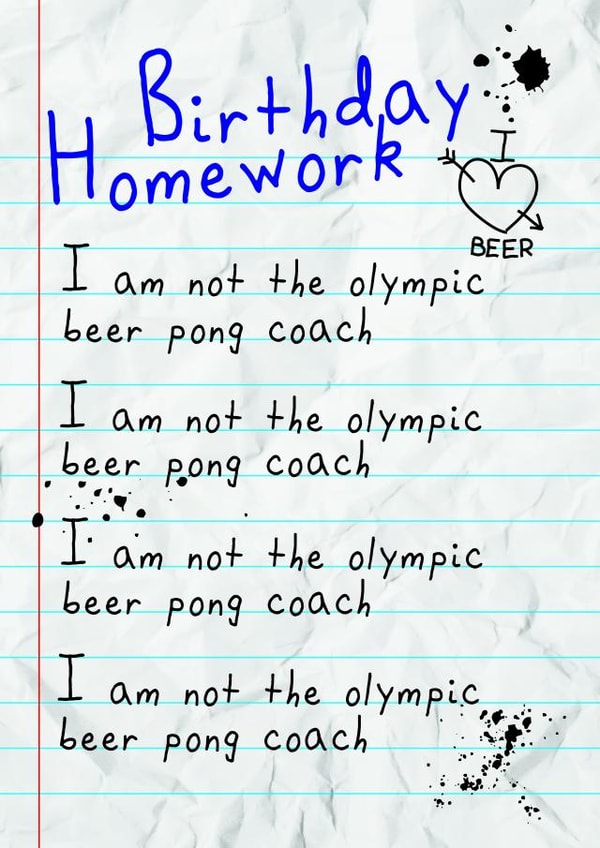 Birthday
Homework
I
BEER
I am not the olympic
beer pong coach
I am not the olympic
beer pong coach
I am not the olympic
beer pong coach
I am not the olympic
beer pong coach